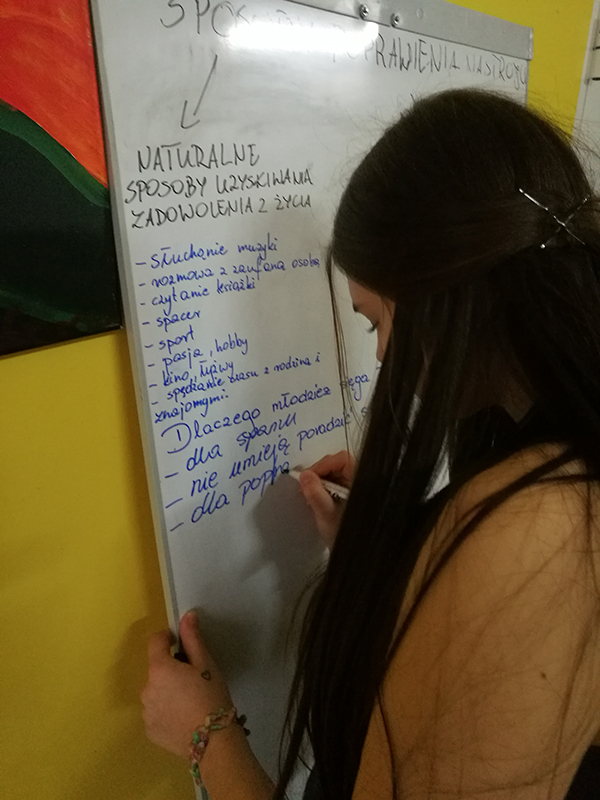 SPOSOBY POPRAWIENIA NASTROJU
NATURALNE
SPOSOBY UZYSKIWANIA
ZADOWOLENIA Z ŻYCIA
- słuchanie muzyki
- rozmowa z zaufaną osobą
- czytanie książki
- spacer
- sport
- pasja, hobby
- kino, łyżwy
- spędzanie czasu z rodziną i
znajomymi
Dlaczego młodzież sięga
- dla szpanu
- nie umieją poradzić s
- dla popra